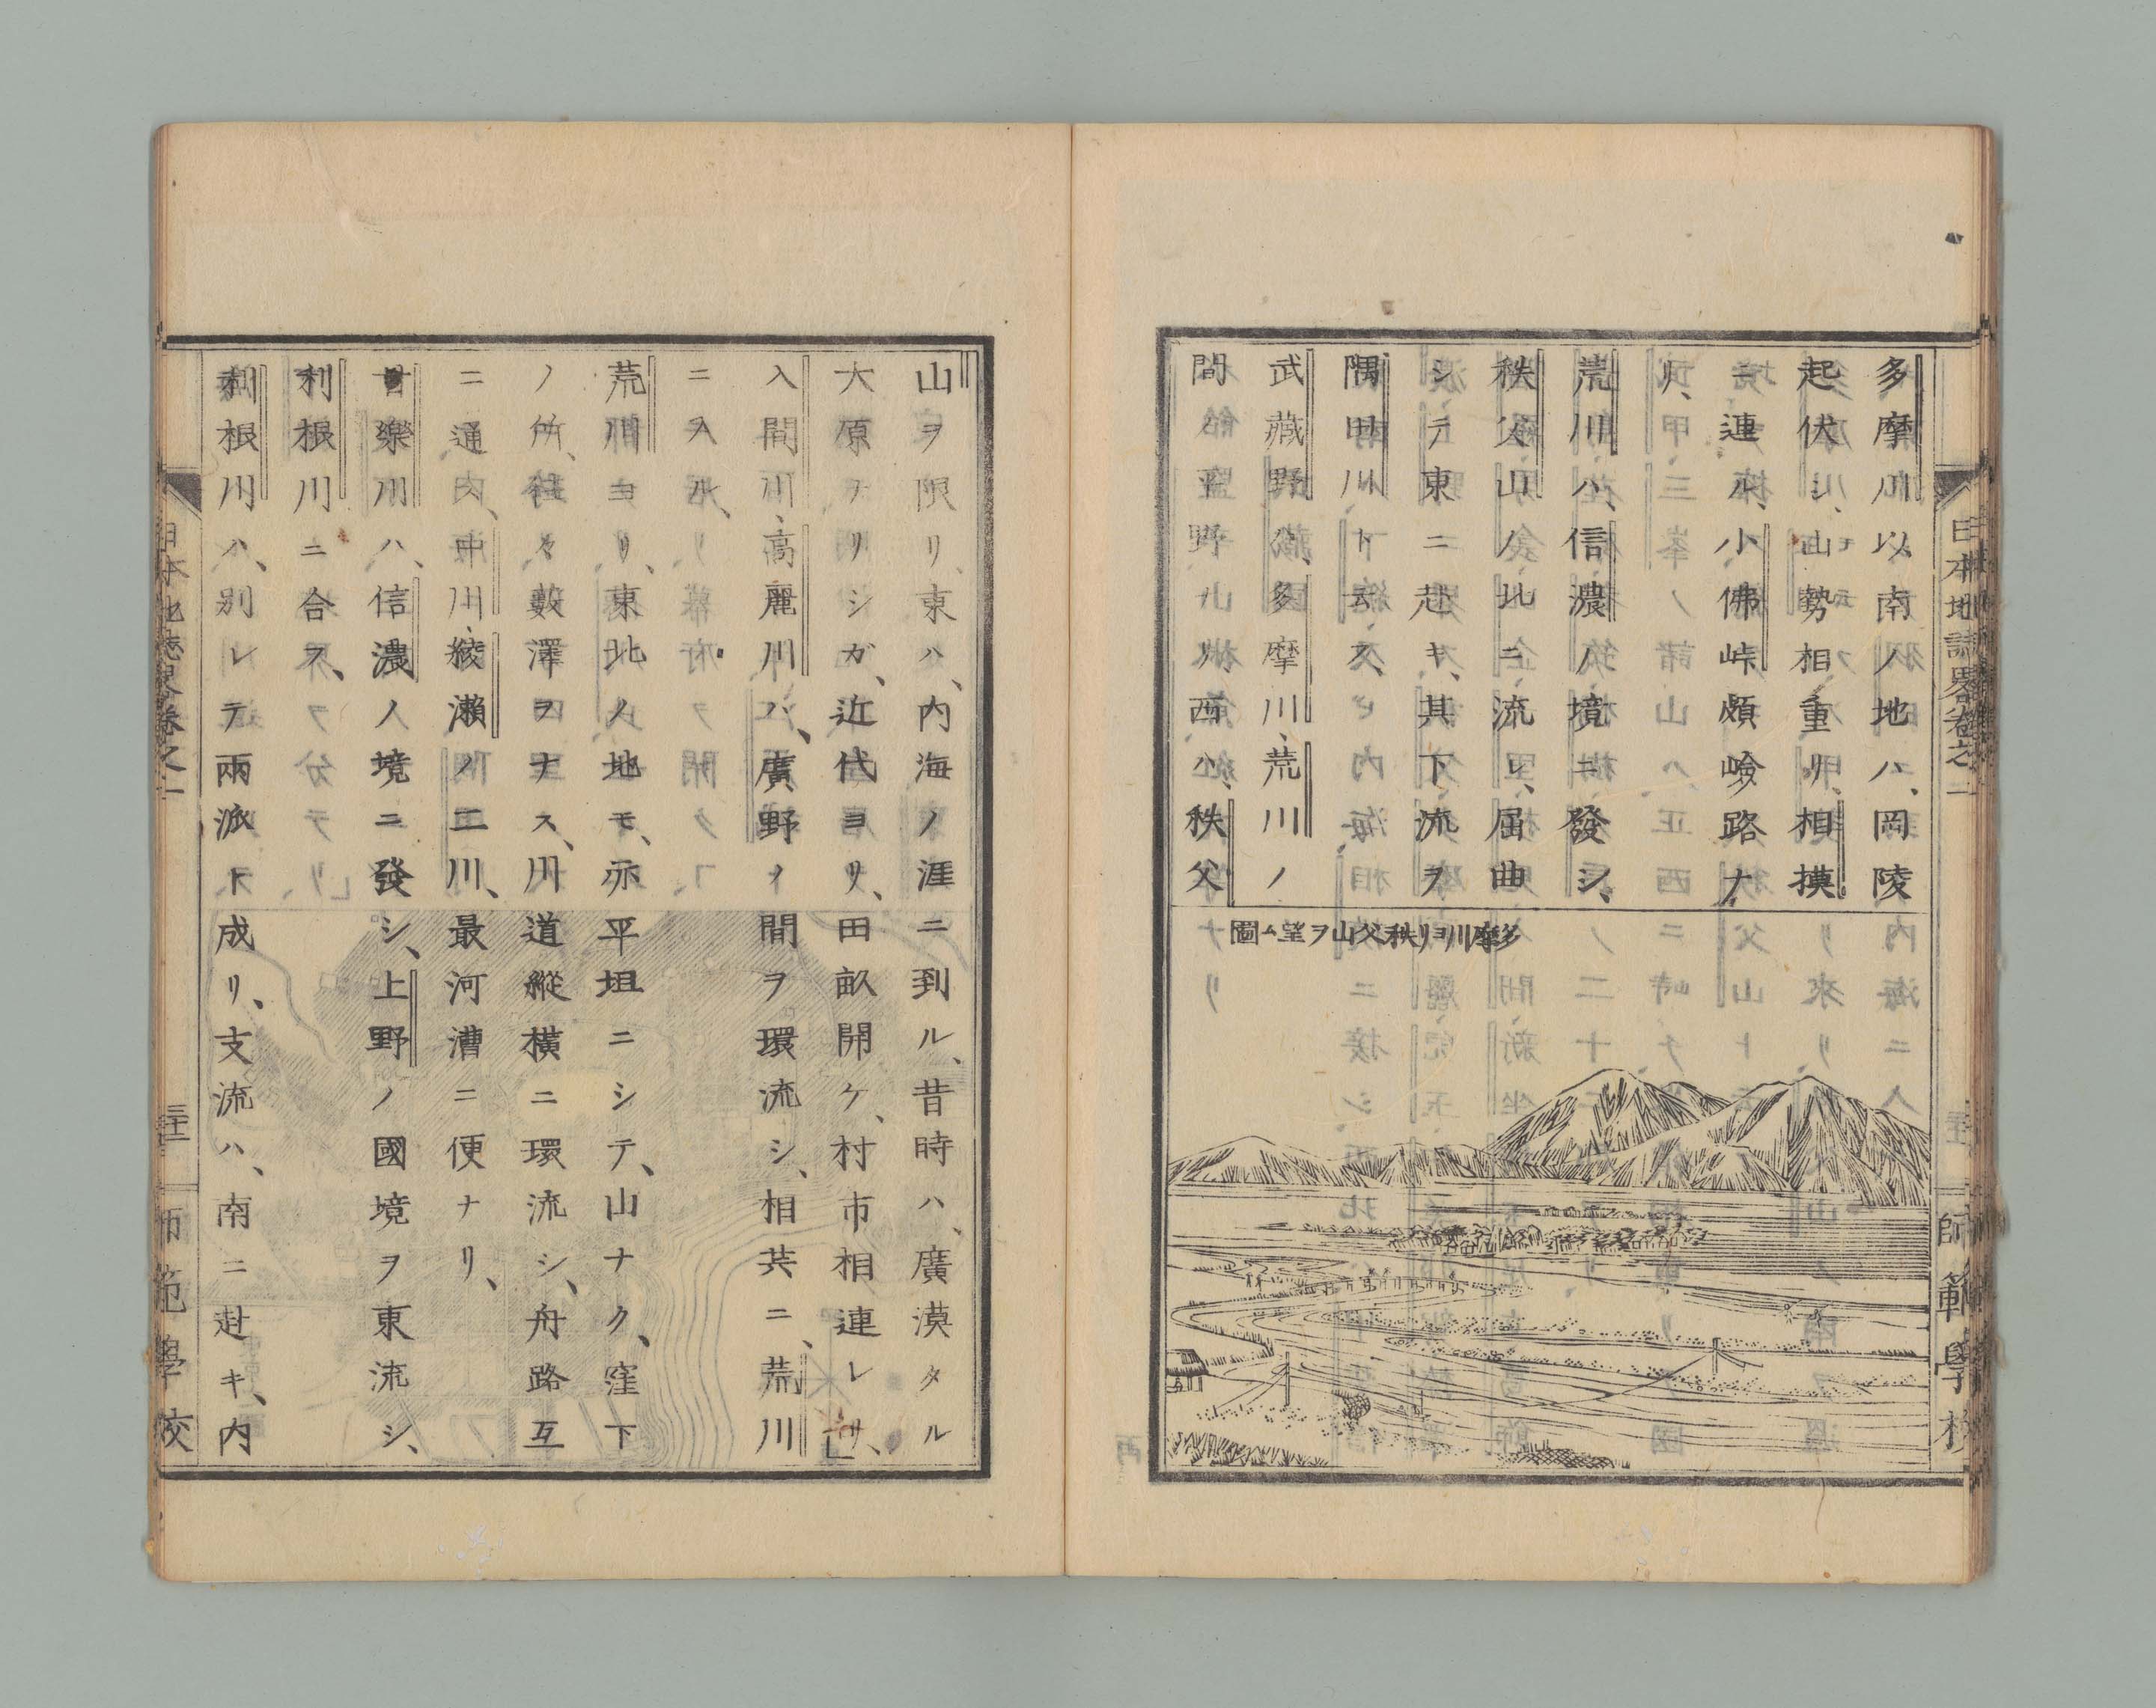 多摩川以南ノ地ハ、岡陵
起伏シ、山勢相重リ、相摸
ニ連ル、小佛峠頗嶮路ナ
リ、
荒川ハ、信濃ノ境ニ發シ、
秩父山ノ北ニ流レ、屈曲
シテ東ニ赴キ、其下流ヲ
隅田川ト云フ、
武藏野ハ、多摩川、荒川ノ
間平野ナリ、西ハ、秩父
多摩川ヨリ秩父山ヲ望ム圖
日本地誌畧卷之二
師範學校
山ヲ限リ、東ハ、内海ノ涯ニ到ル、昔時ハ、廣漠タル
大原ナリシガ、近代ヨリ、田畝開ケ、村市相連レリ、
入間川、高麗川ハ、廣野ノ間ヲ環流シ、相共ニ、荒川
ニ入ル、
荒川ヨリ、東北ノ地モ、亦平坦ニシテ、山ナク、窪下
ノ所、往々藪澤ヲナス、川道縱横ニ環流シ、舟路互
ニ通ス、中川、綾瀬ノ二川、最河漕ニ便ナリ、
甘樂川ハ、信濃ノ境ニ發シ、上野ノ國境ヲ東流シ、
利根川ニ合ス、
利根川ハ、別レテ兩派ト成リ、支流ハ、南ニ赴キ、内
日本地誌畧卷之二
師範學校